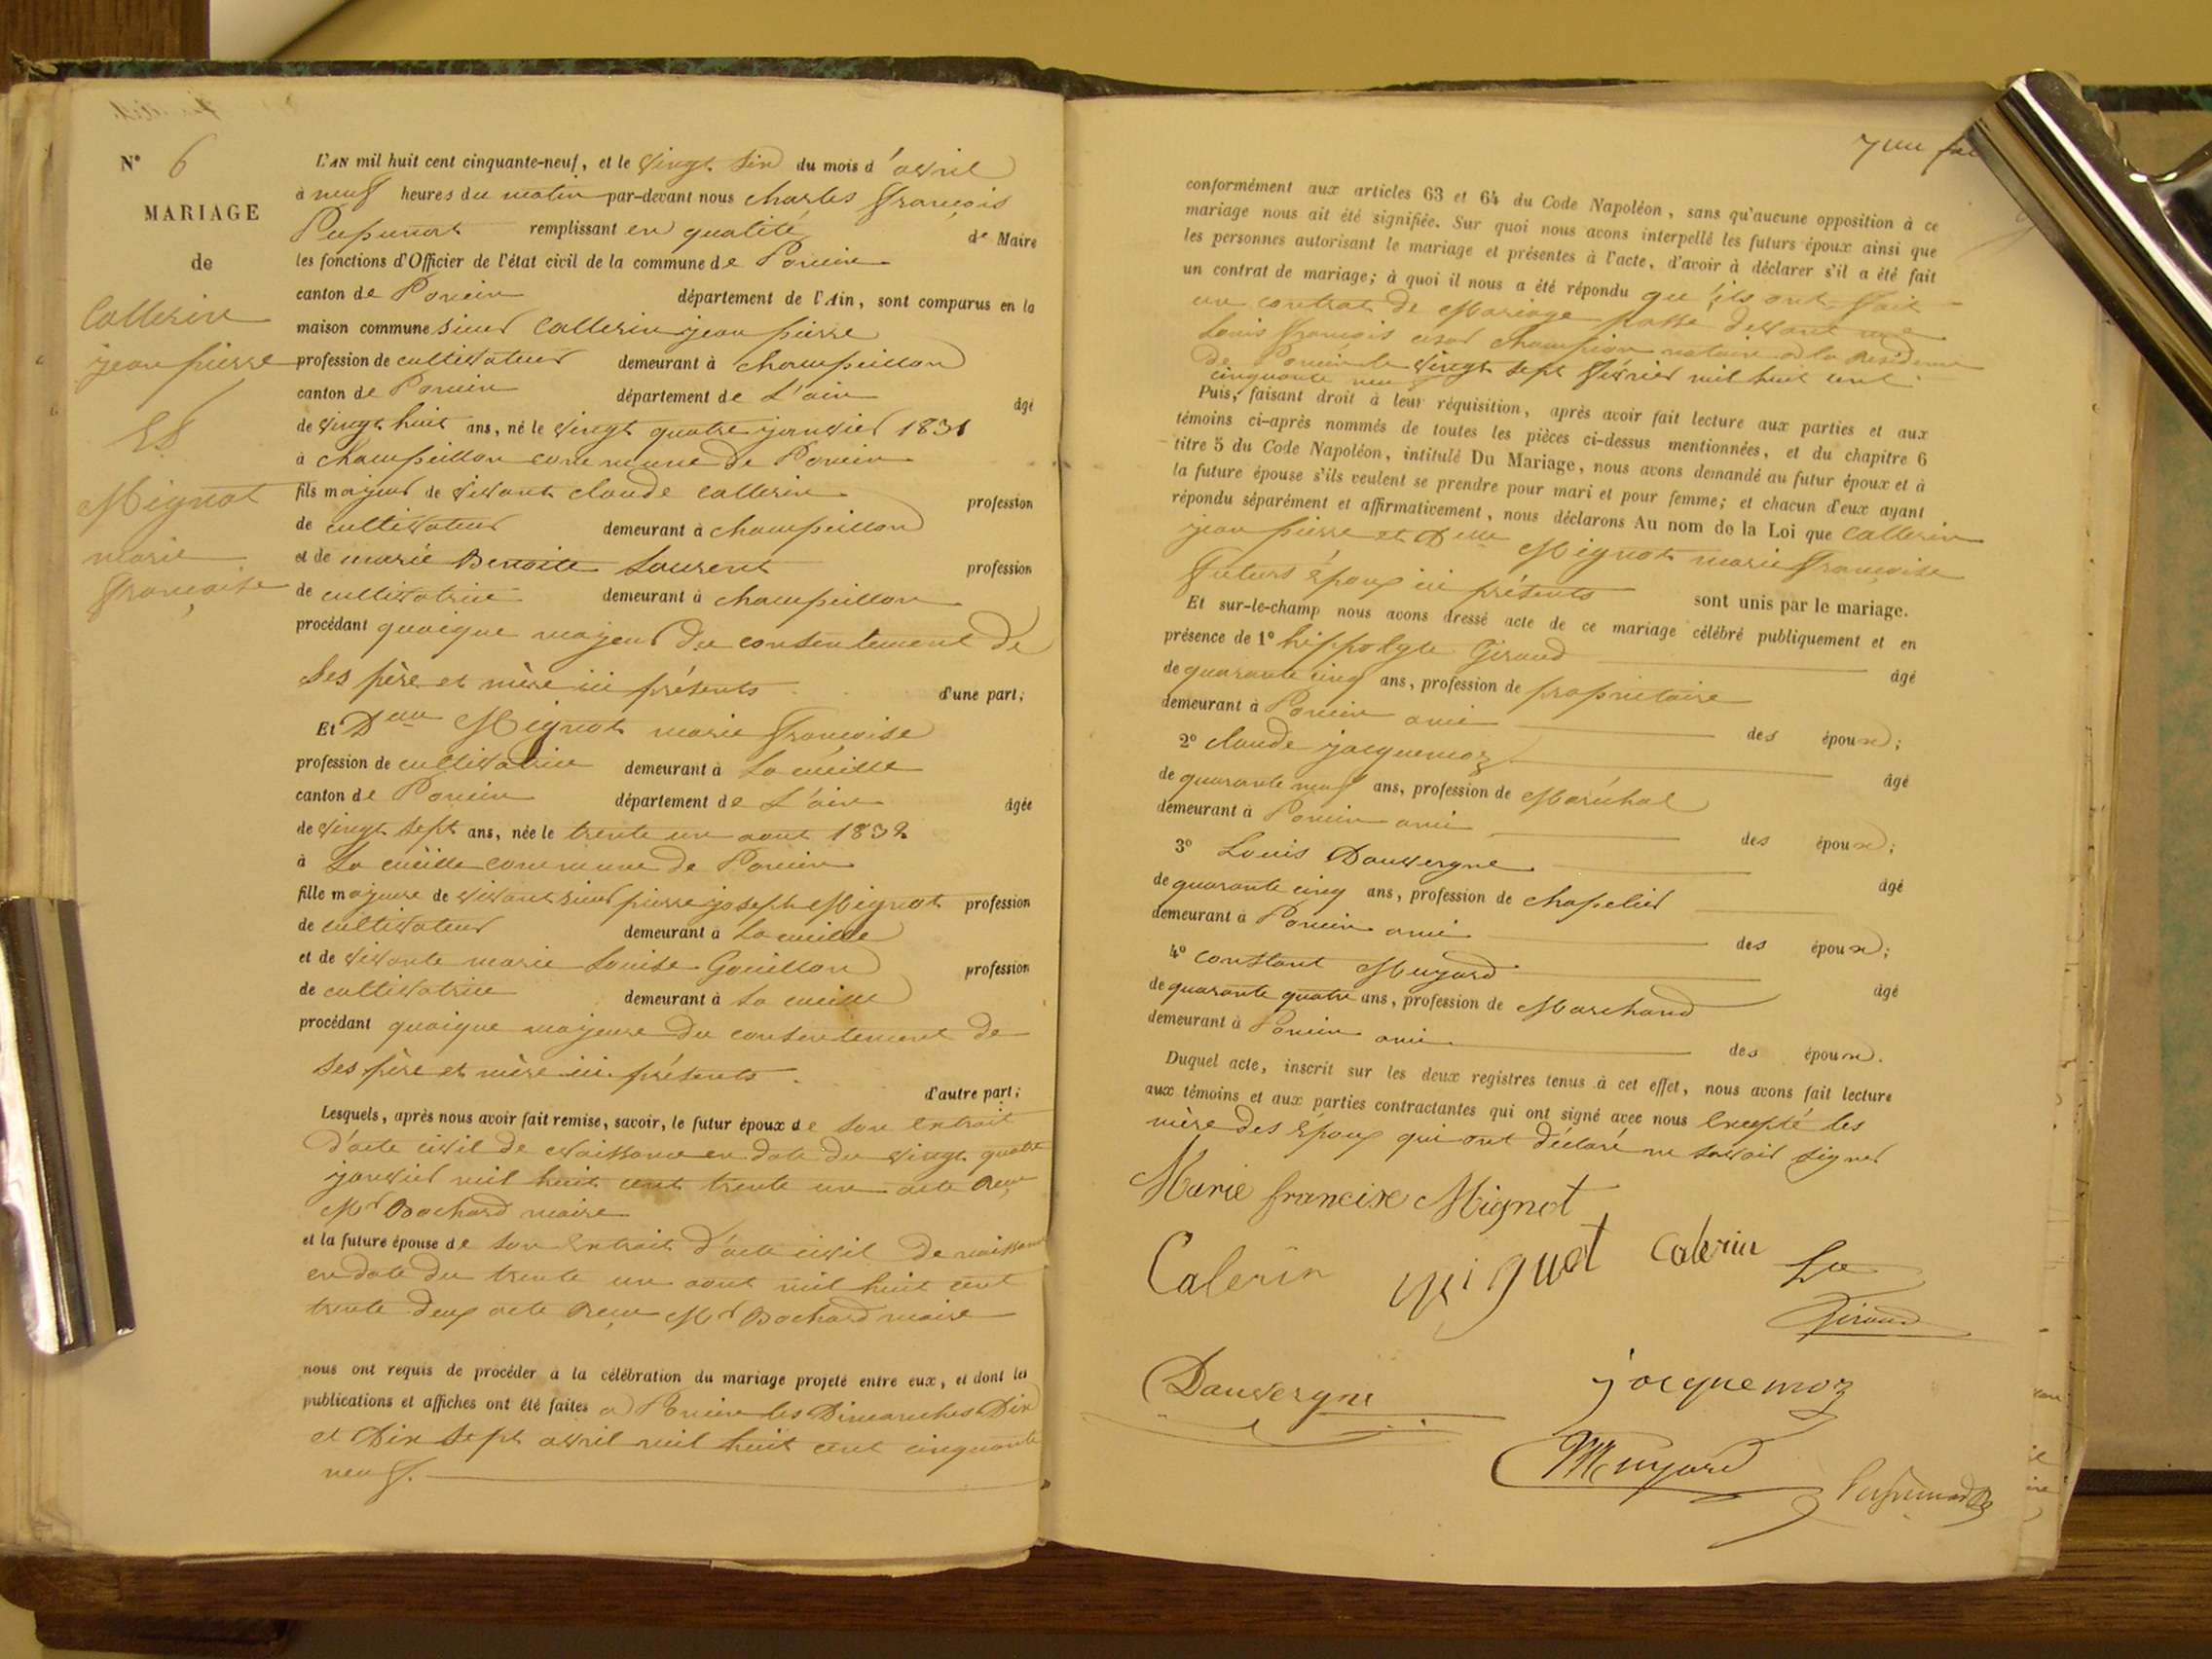 N° 6
MARIAGE
de
Callerin
jean pierre
Et
Mignot
marie
françoise
L'AN mil huit cent cinquante-neuf, et le vingt six du mois d'avril
à neuf heures du matin par-devant nous charles françois
remplissant en qualité de Maire
les fonctions d'Officier de l'état civil de la commune de Poncin
canton de Poncin département de l'Ain, sont comparus en la
maison commune sieur Callerin jean pierre
profession de cultivateur demeurant à champeillon
canton de Poncin département de L'ain âgé
de vingt huit ans, né le vingt quatre janvier 1831
à champeillon commune de Poncin
fils majeur de vivant claude callerin profession
de cultivateur demeurant à champeillon
et de marie Benoite Laurent profession
de cultivatrice demeurant à champeillon
procédant quoique majeur du consentement de
ses père et mère ici présents d'une part;
Et Delle Mignot marie françoise
profession de cultivatrice demeurant à La cueille
canton de Poncin département de L'ain âgée
de vingt sept ans, née le trente un aout 1832
à La cueille commune de Poncin
fille majeure de vivant sieur pierre joseph Mignot profession
de cultivateur demeurant à La cueille
et de vivante marie Louise Gouillon profession
de cultivatrice demeurant à La cueille
procédant quoique majeure du consentement de
ses père et mère ici présents
d'autre part;
Lesquels, après nous avoir fait remise, savoir, le futur époux de son extrait
d'acte civil de naissance en date du vingt quatre
janvier mil huit cent trente un acte reçu
Mr Bochard maire
et la future épouse de son extrait d'acte civil de naissance
en date du trente un aout mil huit cent
trente deux acte reçu Mr Bochard maire
nous ont requis de procéder à la célébration du mariage projeté entre eux, et dont les
publications et affiches ont été faites a Poncin les Dimanches Dix
et Dix sept avril mil huit cent cinquante
neuf.
conformément aux articles 63 et 64 du Code Napoléon, sans qu'aucune opposition à ce
mariage nous ait été signifiée. Sur quoi nous avons interpellé les futurs époux ainsi que
les personnes autorisant le mariage et présentes à l'acte, d'avoir à déclarer s'il a été fait
un contrat de mariage; à quoi il nous a été répondu qu'ils ont fait
un contrat de Mariage passé devant me
Louis françois césar champion notaire a la résidence
de Poncin le vingt sept février mil huit cent
cinquante neuf
Puis, faisant droit à leur réquisition, après avoir fait lecture aux parties et aux
témoins ci-après nommés de toutes les pièces ci-dessus mentionnées, et du chapitre 6
titre 5 du Code Napoléon, intitulé Du Mariage, nous avons demandé au futur époux et à
la future épouse s'ils veulent se prendre pour mari et pour femme; et chacun d'eux ayant
répondu séparément et affirmativement, nous déclarons Au nom de la Loi que Callerin
jean pierre et Delle Mignot marie françoise
futurs époux ici présents sont unis par le mariage.
Et sur-le-champ nous avons dressé acte de ce mariage célébré publiquement et en
présence de 1° hippolyte Giraud âgé
de quarante cinq ans, profession de propriétaire
demeurant à Poncin ami des époux;
2° claude jacquemoz âgé
de quarante neuf ans, profession de Maréchal
demeurant à Poncin ami des époux;
3° Louis Dauvergne âgé
de quarante cinq ans, profession de chapelier
demeurant à Poncin ami des époux;
4° constant Muyard âgé
de quarante quatre ans, profession de Marchand
demeurant à Poncin ami des époux.
Duquel acte, inscrit sur les deux registres tenus à cet effet, nous avons fait lecture
aux témoins et aux parties contractantes qui ont signé avec nous Excepté les
mère des Epoux qui ont déclaré ne savoir signer
Marie francise Mignot
Calerin miguot Calerin
Giraud
Dauvergne jacquemoz
Muyard